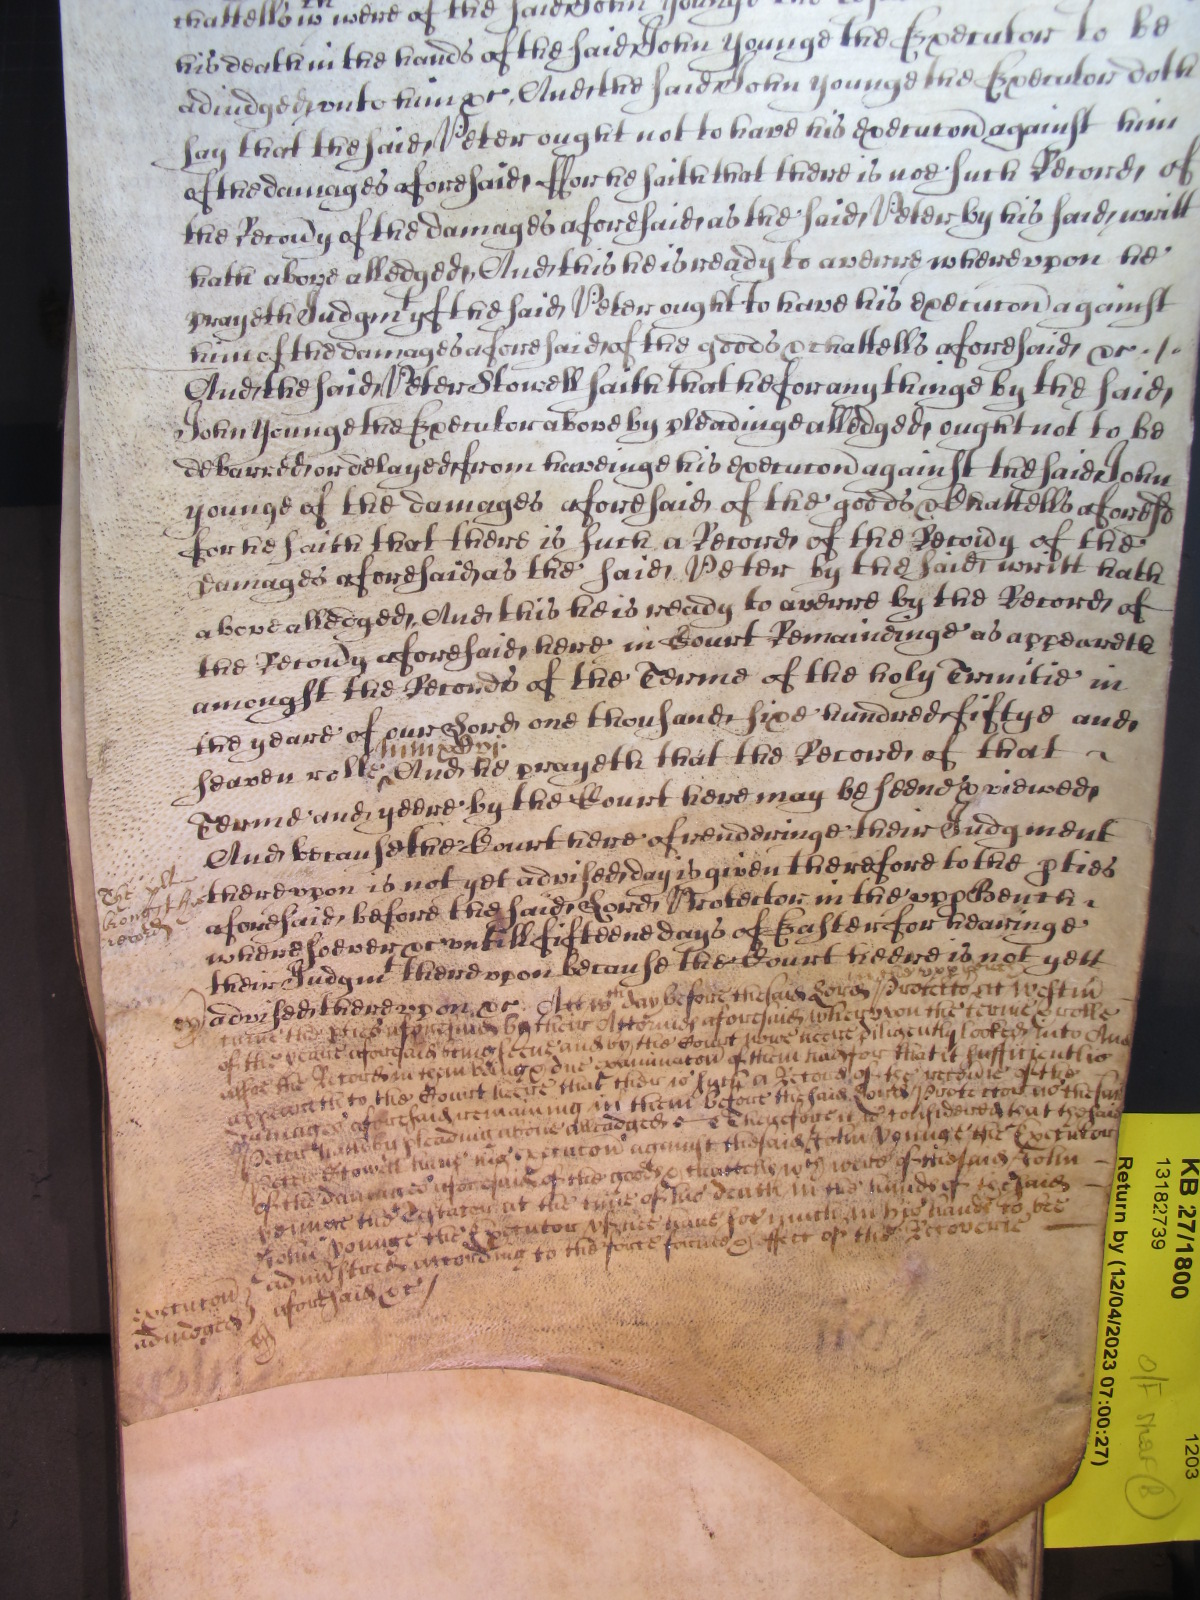 chattells wch were of the said John Younge the
his death in the hands of the said John Younge the Executor to be
adiudged vnto him &c. And the said John Younge the Executor doth
say that the said Peter ought not to have his execucon against him
of the damages aforesaid ffor he saith that there is noe such Record of
the Recovy of the damages aforesaid as the said Peter by his said writt
hath above alledged, And this he is ready to averre wherevpon he
prayeth Judgmt yf the said Peter ought to have his execucon against
him of the damages aforesaid of the goods & chattells aforesaid &c ./.
And the said Peter Stowell saith that he for any thinge by the said
John Younge the Executor above by pleadinge alledged ought not to be
debarred or delayed from haveinge his execucon against the said John
younge of the damages aforesaid of the goods & Chattells aforesd
for he saith that there is such a Record of the Recovy of the
damages aforesaid as the said Peter by the said writt hath
above alledged, And this he is ready to averre by the Record of
the Recovy aforesaid here in Court Remaindinge as appeareth
amongst the Records of the Terme of the holy Trinitie in
the yeare of our Lord one thousand sixe hundred fiftye and
seaven rolle And he prayeth that the Record of that
Terme and yeere by the Court here may be seene & viewed,
And because the Court here of renderinge their Judgment
therevpon is not yet advised day is given therefore to the pties
aforesaid before the said Lord Protector in the vpp Bench
wheresoever &c vntill fifteene days of Easter for hearinge
their Judgmt therevpon because the Court heere is not yett
The plt
brought
record
advised therevpon &c. Att wch day before the said Lord Protector at Westm
in the vpper
the pties aforesaid by their Attornies aforesaid wherevpon the terme & rolle
of the yeare aforesaid being seene and by the Court nowe heere diligently looked into And
the Record in them being & due examinacon of them had for that it sufficiently
appeareth to the Court heere that there is such a Record of the recovie of the
damages aforesaid remaining in them before the said Lord Protector as the said
Peter hath by pleading above alleadged Therefore it is considered that the said
Peter Stowell have his execucon against the said John Younge the Executor
of the damages aforesaid of the goods & chattells wch were of the said John
the Testator at the time of his death in the hands of the said
John Younge the Executor yf hee have soe much in his hands to bee
administred according to the force forme & effect of the Recoverie
aforesaid &c /
execucon
adiudged
KB 27/1800
13182739
1203
Return by (12/04/2023 07:00:27)
O/F